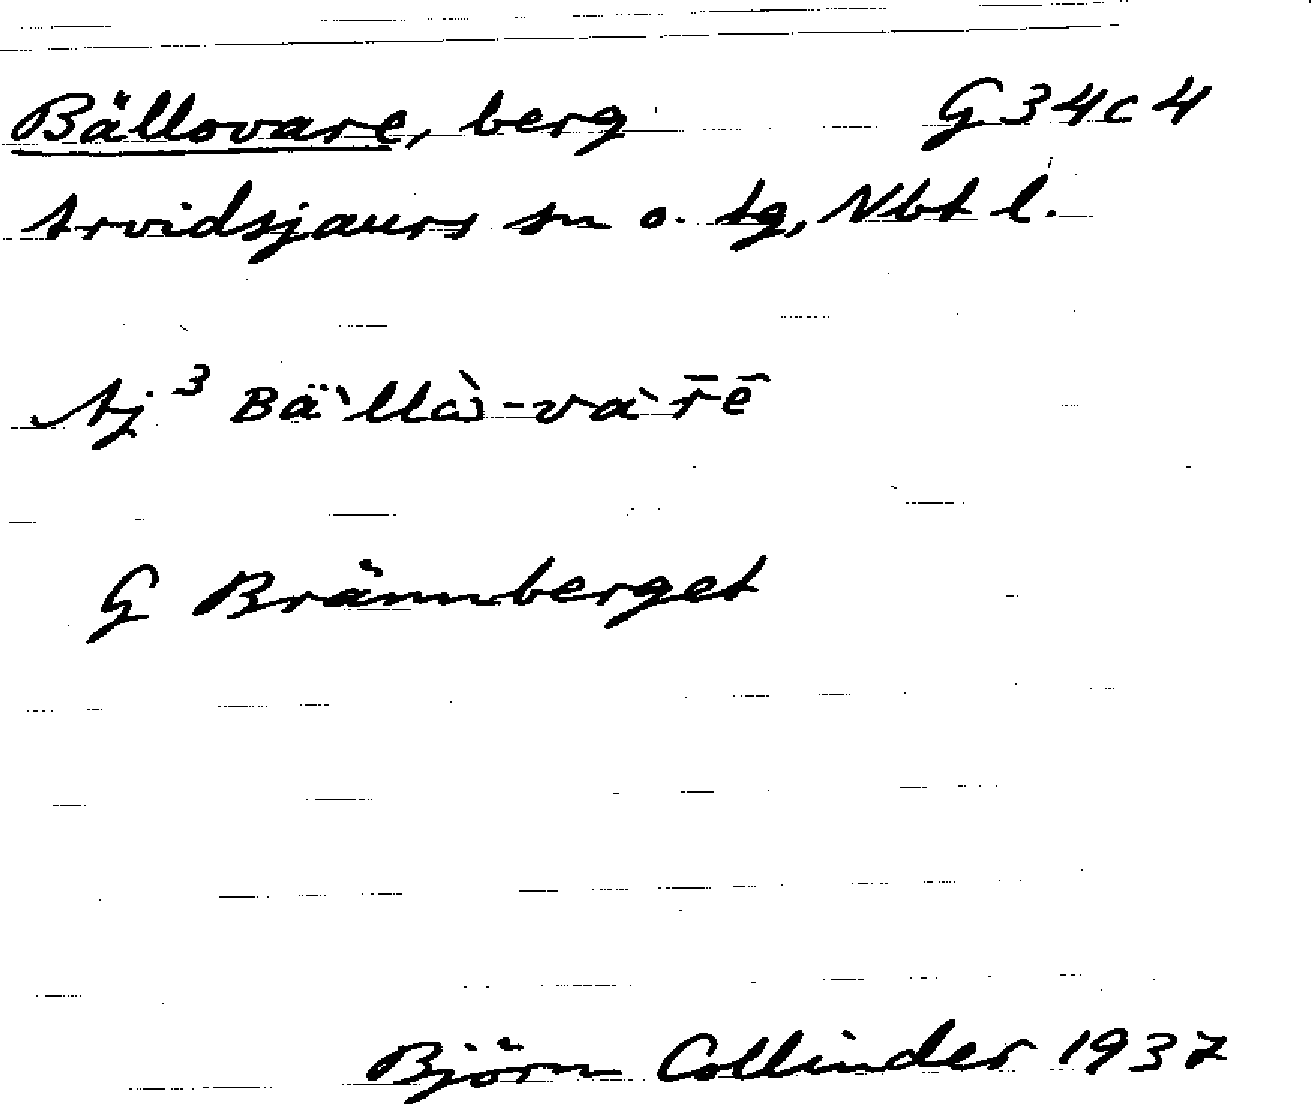 Bällovare, berg G34c4
Arvidsjaurs sn o. tg, Nbt l.
Aj³ Bä̀llà-vàr̄ē
G Brännberget
Björn Collinder 1937